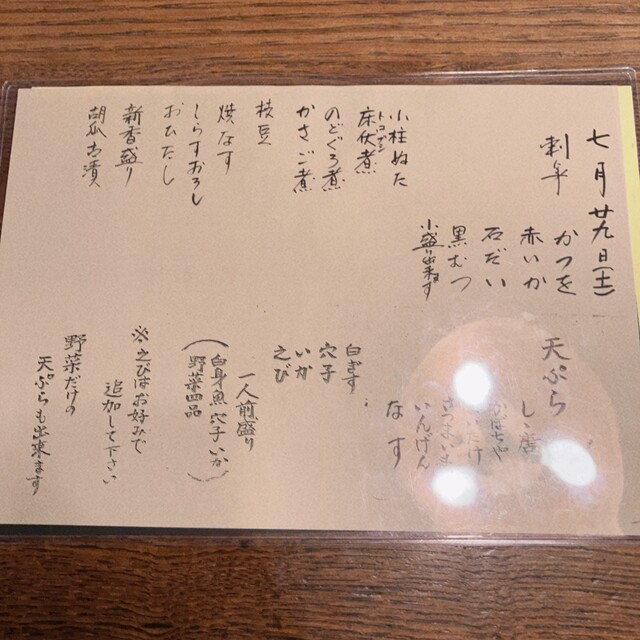 七月廿九日(土)
刺身
かつを
赤いか
石だい
黒むつ
小盛り出来ます
小柱ぬた
トコブシ
床伏煮
のどぐろ煮
かさご煮
枝豆
焼なす
しらすおろし
おひたし
新香盛り
胡瓜古漬
天ぷら
しゝ唐
かぼちゃ
いんげん
なす
白ぎす
穴子
いか
えび
一人前盛り
(白身魚 穴子 いか
野菜四品)
※えびはお好みで
追加して下さい
野菜だけの
天ぷらも出来ます